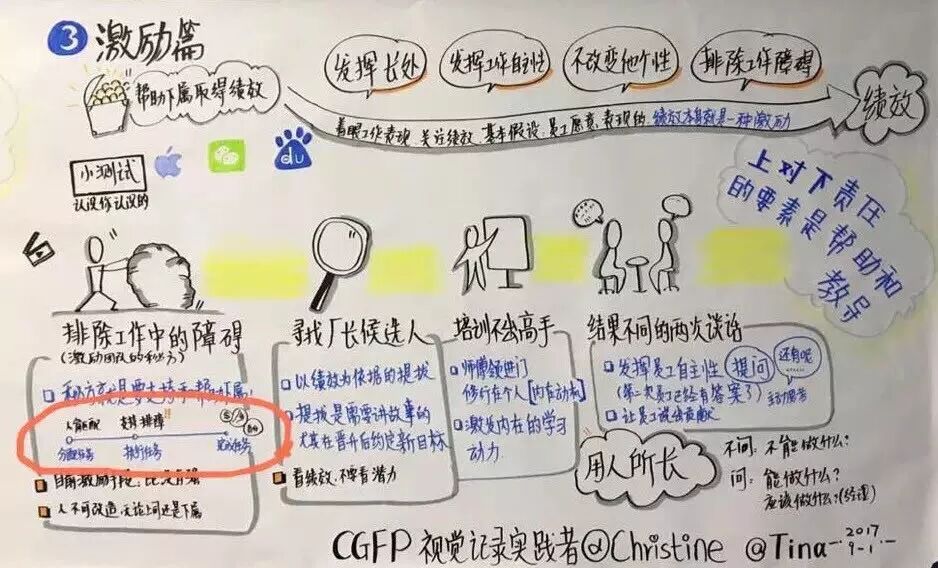 3 激励篇
帮助下属取得绩效
发挥长处
发挥工作自主性
不改变他个性
排除工作障碍
绩效
着眼工作表现,关注绩效,基本假设:员工愿意表现的,绩效本身就是一种激励
小测试
认识你认识的
du
上对下责任
的要素是帮助和
教导
排除工作中的障碍
(激励团队的秘方)
秘方就是要支持和帮助下属
人能匹配 支持 排障!!
分配任务 执行任务 完成任务
人不可改造,无论上司还是下属
寻找厂长候选人
以绩效为依据的提拔
提拔是需要讲故事的
尤其在晋升后约定新目标
看绩效,不要看潜力
培训不出高手
师傅领进门
修行在个人[内在动机]
激发内在的学习
动力
结果不同的两次谈话
发挥员工自主性 提问
还有呢
(第一次员工已经有答案了)主动思考
让员工说出贡献
用人所长
不问:不能做什么?
问:能做什么?
应该做什么?(经理)
CGFP 视觉记录实践者@Christine @Tina
2017
9-1